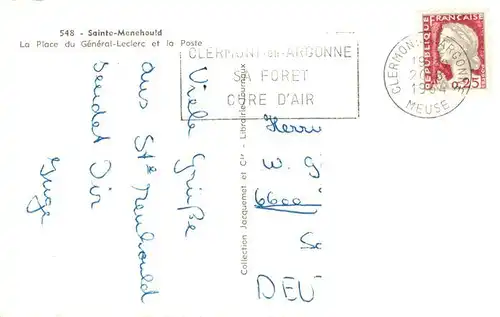 548 - Sainte-Menehould
La Place du Général-Leclerc et la Poste
CLERMONT-en-ARGONNE
SA FORET
CURE D'AIR
CLERMONT ARGONNE
MEUSE
REPUBLIQUE FRANÇAISE
0,25
Viele Grüße
aus Ste Menehould
sendet Dir
Inge
Collection Jacquemet et Cie - Librairie-Journaux
Herrn
W. G
6600
Sa
DEU